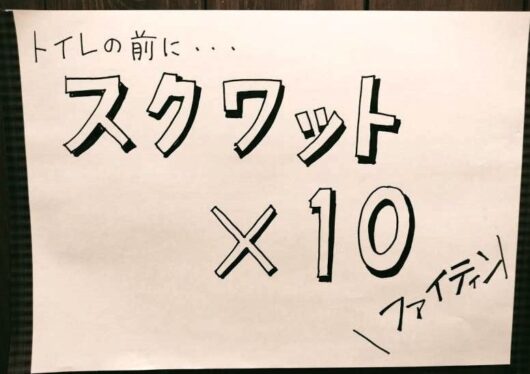 トイレの前に...
スクワット
×10
\ファイティン/